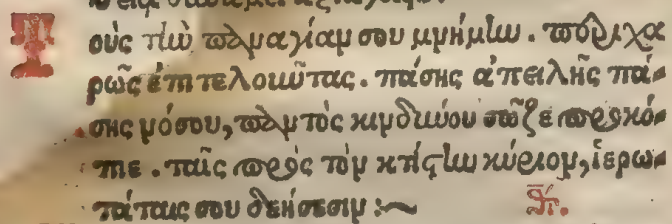 Τοὺς τὴν παναγίαν σου μνήμην . περιχα
ρῶς ἐπιτελοῦντας . πάσης ἀπειλῆς πά-
σης νόσου, παντὸς κινδύνου σῶζε προκό-
πιε . ταῖς πρὸς τὸν κτίστην κύριον, ἱερω-
τάταις σου δεήσεσιν :~